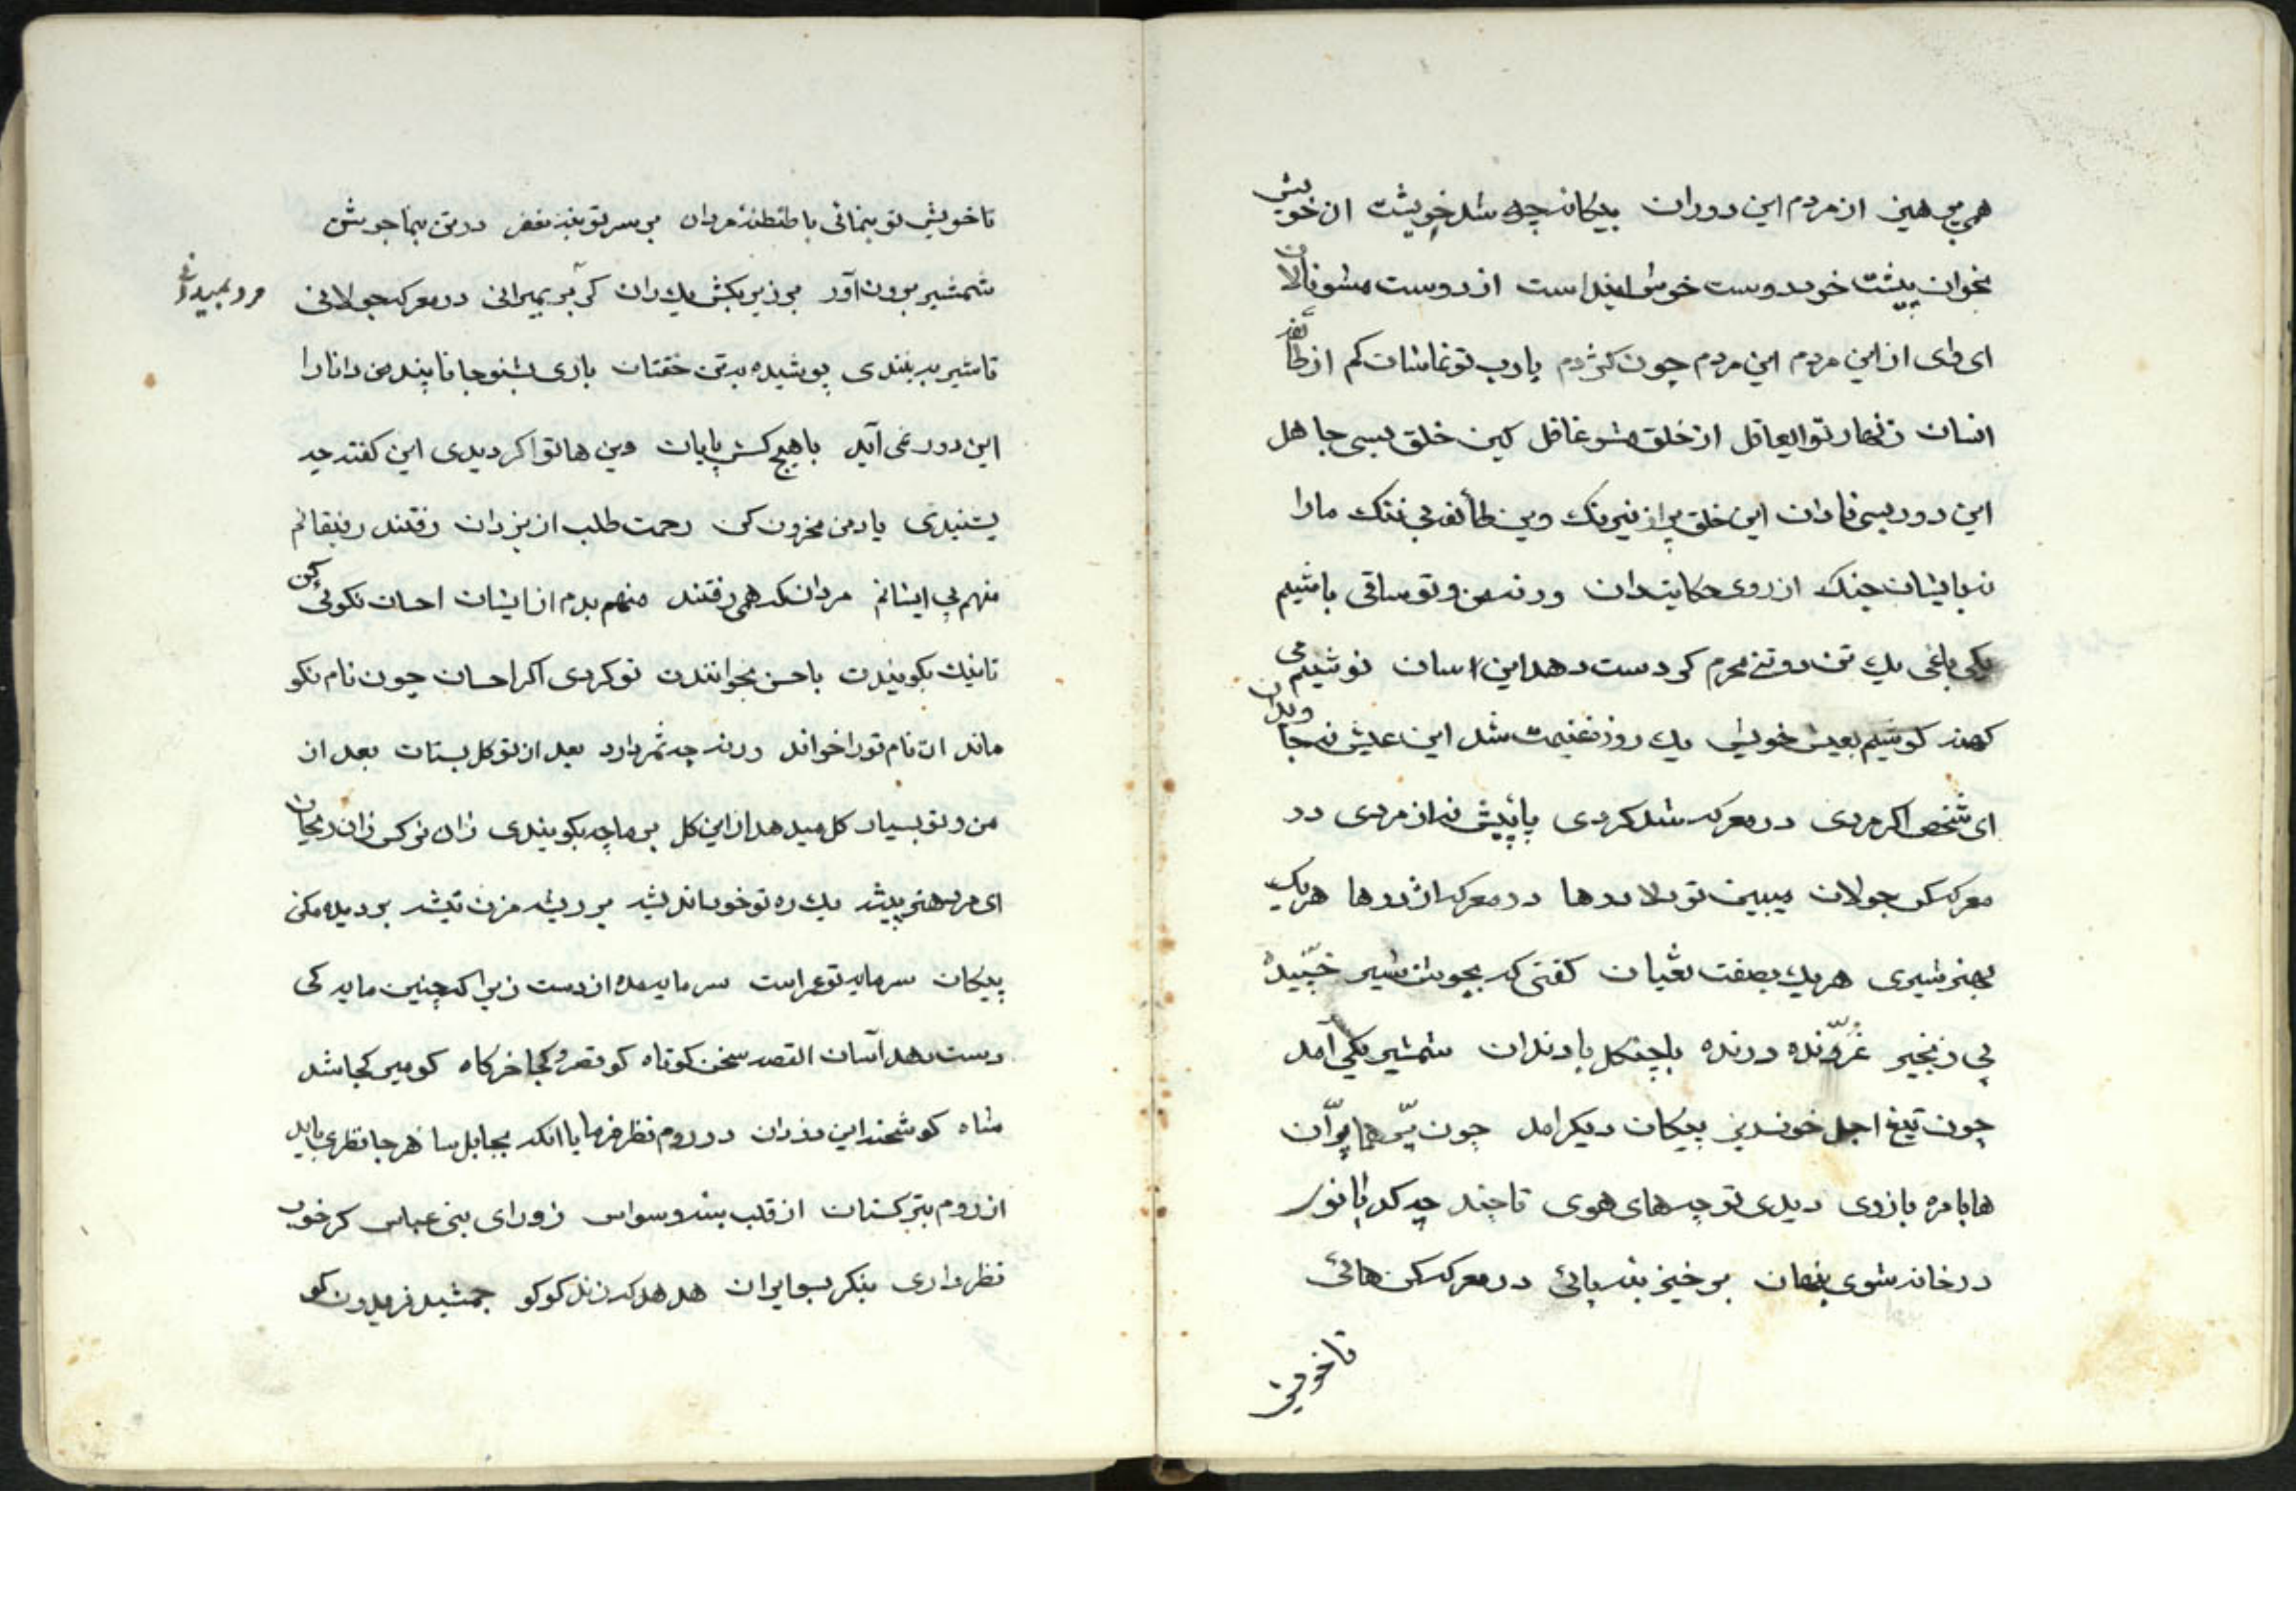 همی پرهیز از مردم این دوران بیکانه چه شد خویشت از خویش
بخوان پیشت خود دوست خوش اینداست از دوست مشو نالان
ای وای از این مردم این مردم چون کژدم یارب تو نماشان کم از طائفه
انسان زنهار تو ایعاقل از خلق مشو غافل کین خلق بسی جاهل
این دور بسی نادان این خلق پر از نیرنک وین طائفه بی ننک مارا
نه بایشان جنک از روی حکایت دان ورنه من و تو ساقی باشیم
یکی باغی یك تن دو تن محرم کی دست دهد این اسان نوشیم می
کهنه کوشیم بعیش خویش یك روز غنیمت شد این عیش نه جاویدان
ای شخص اکر مردی در معرکه شد کردی پا پیش نه از مردی در
معرکه کن جولان میبین تو دلاورها در معرکه اژدرها هریک
بهنر شیری هریك بصفت ثعبان کفتی که بجوش شیر خیّبیده
بی زنجیر غرّنده درنده با چنکل با دندان شمشیر یکی آمد
چون تیغ اجل خونریز پیکان دیکر امد چون پرّ هما پرّان
هابا مره بازوی دیدی تو چه های هوی تا چند چه کدبانو
در خانه شوی پنهان برخیز بنه پائی در معرکه کن هائی
تا خویش
تا خویش تو بنمائی با طنطنهٔ مردان بر سر تو بنه مغفر در تن بنما جوشن
شمشیر برون آور بر زیر بکش یك ران کی بر بمیرانی در معرکه جولانی
مرد بمیدانی
تا شیر به بندی پوشیده به تن خفتان باری بشنو جانا پند من دانا را
این دور نمی آید با هیچ کس پایان وین ها تو اکر دیدی این کفته چه
بشنیدی یاد من محزون کن رحمت طلب از یزدان رفتند رفیقانم
منهم پی ایشانم مردان که همی رفتند منهم بدم از ایشان احسان نکوئی کن
تا نیك بکویندت با حسن بخوانندت تو کردی اکر احسان چون نام نکو
ماند ان نام تو را خواند ورنه چه ثمر دارد بعد از تو کل بستان بعد از
من و تو بسیار کل میدهد از این کل بر ما چه بکویندی زان نرکس زان ریحان
ای مرد هنر پیشه یك ره تو خود اندیشه بر ریشه مزن تیشه بر دیده مکن
پیکان سرمایه تو عمر است سرمایه مده از دست زیرا که چنین مایه کی
دست دهد آسان القصه سخن کوتاه کو قصر و کجا خرکاه کو میر کجا شد
شاه کو شحنهٔ این دوران در روم نظر فرما یا انکه بجابلسا هر جا نظری باید
از روم بترکستان از قلب بنه وسواس زورای بنی عباس کر خوب
نظر داری بنکر بسو ایران هدهد که زند کوکو جمشید فریدون کو